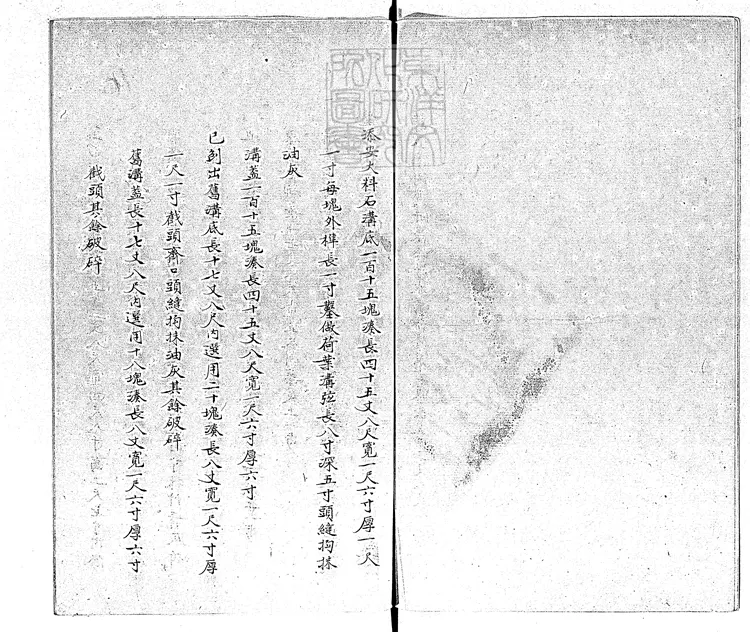 添安大料石溝底一百十五塊湊長四十五丈八尺寬一尺六寸厚一尺
一寸每塊外榫長一寸鑿做荷葉溝弦長八寸深五寸頭縫拘抹
油灰
溝蓋一百十五塊湊長四十五丈八尺寬一尺六寸厚六寸
已刨出舊溝底長十七丈八尺內選用二十塊湊長八丈寬一尺六寸厚
一尺一寸截頭齊口頭縫拘抹油灰其餘破碎
舊溝蓋長十七丈八尺內選用十八塊湊長八丈寬一尺六寸厚六寸
截頭其餘破碎